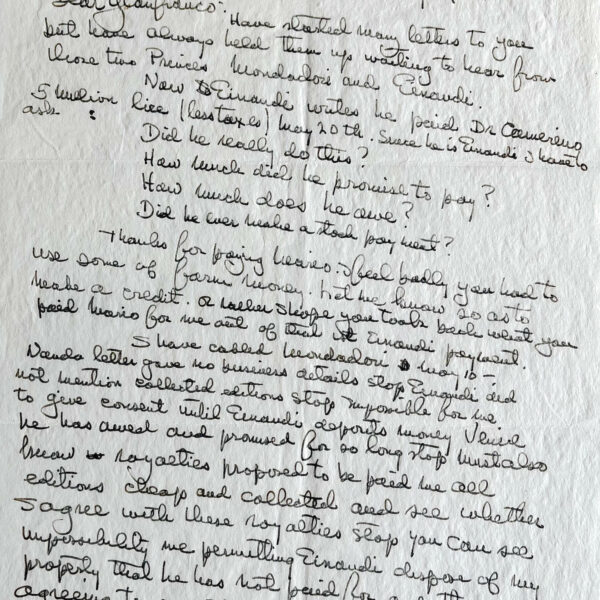 Dear Gianfranco:
Have started many letters to you
but have always held them up waiting to hear from
those two Princes Mondadori and Einaudi.
Now Einaudi writes he paid Dr Camerino
5 million lire (less taxes) May 20th. Since he is Einaudi I have to
ask:
Did he really do this?
How much did he promise to pay?
How much does he owe?
Did he ever make a stock payment?
Thanks for paying Mario. I feel badly you had to
use some of farm money. Let me know so as to
make a credit. Or rather I hope you took back what you
paid Mario for me out of that Einaudi payment.
I have cabled Mondadori May 10 -
Nanda letter gave no business details stop Einaudi did
not mention collected editions stop Impossible for me
to give consent until Einaudi deposits money
he has owed and promised for so long stop Must also
know royalties proposed to be paid me all
editions cheap and collected and see whether
I agree with these royalties stop you can see
impossibility me permitting Einaudi dispose of my
property that he has not paid for
agreeing to